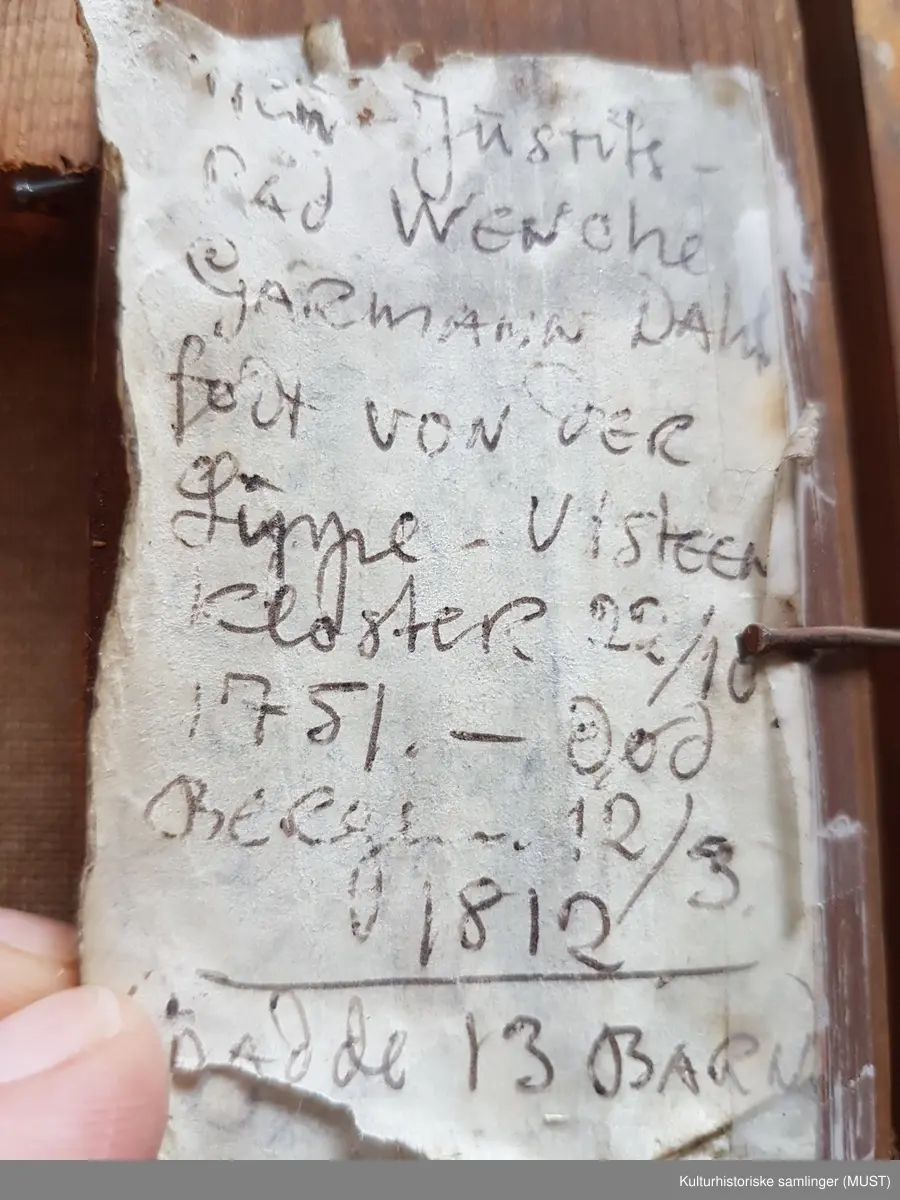 Justits-
Råd WENChe
GARMANN DAHL
fodt VON DER
Lippe - UtsteEN
KlosteR 22/10
1751. — Død
BERGEN. 12/3
1812
Hadde 13 BARN
Kulturhistoriske samlinger (MUST)